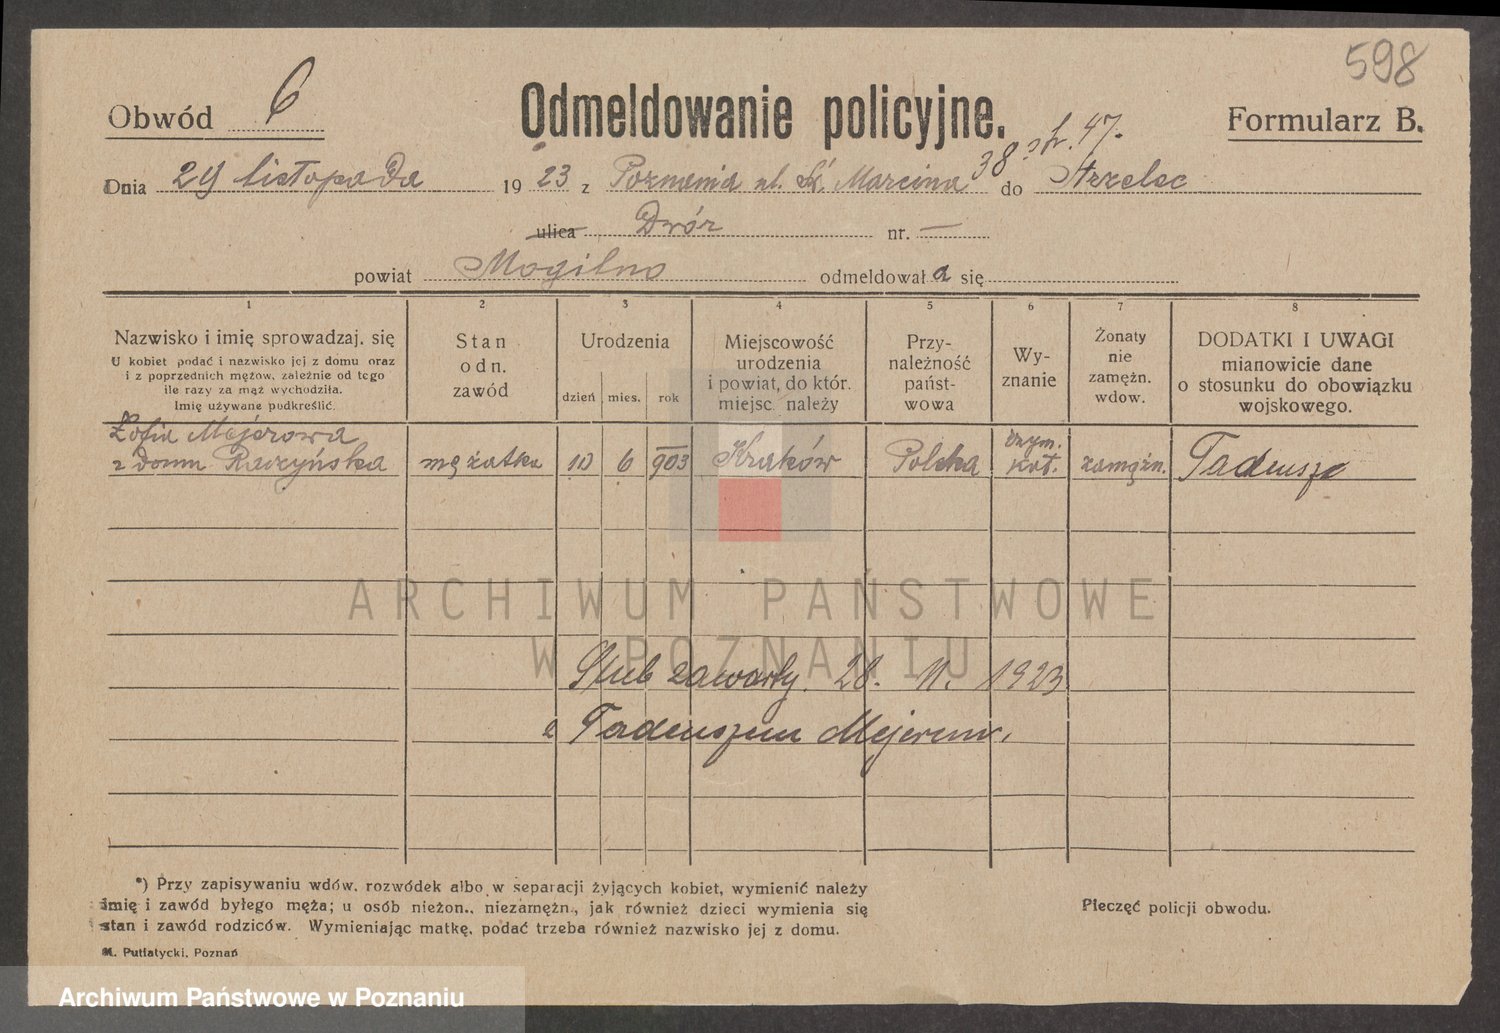 598
Obwód 6
Odmeldowanie policyjne.
Formularz B.
Dnia 29 listopada 1923 z Poznania ul. Św. Marcina 38 do Strzelec
47.
ulica Dwór nr. —
powiat Mogilno odmeldował a się
1 2 3 4 5 6 7 8
Nazwisko i imię sprowadzaj. się
U kobiet podać i nazwisko jej z domu oraz
i z poprzednich mężów, zależnie od tego
ile razy za mąż wychodziła.
Imię używane podkreślić.
Stan
odn.
zawód
Urodzenia
dzień mies. rok
Miejscowość
urodzenia
i powiat, do któr.
miejsc. należy
Przy-
należność
państ-
wowa
Wy-
znanie
Żonaty
nie
zamężn.
wdow.
DODATKI I UWAGI
mianowicie dane
o stosunku do obowiązku
wojskowego.
Zofia Mejerowa
z domu Raczyńska mężatka 10 6 903 Kraków Polska rzym. kat. zamężn. Tadeusz
ARCHIWUM PAŃSTWOWE
W POZNANIU
Ślub zawarty. 28. 11. 1923
z Tadeuszem Mejerem.
*) Przy zapisywaniu wdów, rozwódek albo w separacji żyjących kobiet, wymienić należy
imię i zawód byłego męża; u osób nieżon., niezamężn., jak również dzieci wymienia się
stan i zawód rodziców. Wymieniając matkę, podać trzeba również nazwisko jej z domu.
Pieczęć policji obwodu.
M. Putiatycki, Poznań
Archiwum Państwowe w Poznaniu